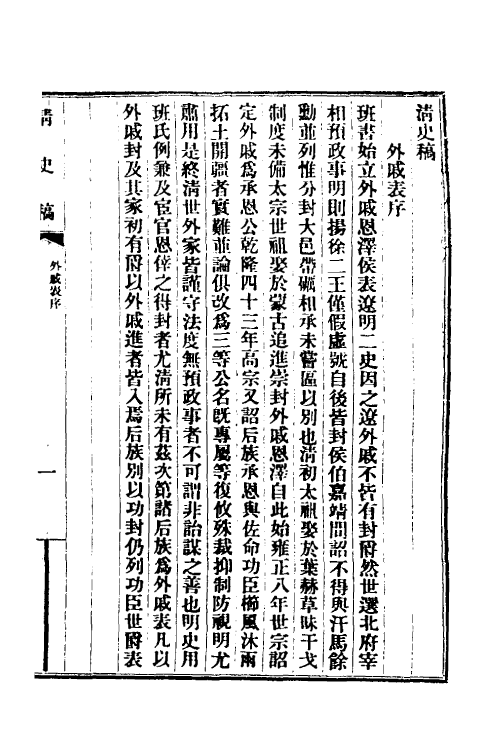 清史稿
外戚表序
班書始立外戚恩澤侯表遼明二史因之遼外戚不皆有封爵然世選北府宰
相預政事明則揚徐二王僅假虛號自後皆封侯伯嘉靖間詔不得與汗馬餘
勳並列惟分封大邑帶礪相承未嘗區以別也清初太祖娶於葉赫草昧干戈
制度未備太宗世祖娶於蒙古追進崇封外戚恩澤自此始雍正八年世宗詔
定外戚爲承恩公乾隆四十三年高宗又詔后族承恩與佐命功臣櫛風沐雨
拓土開疆者實難並論俱改爲三等公名既專屬等復攸殊裁抑制防視明尤
肅用是終清世外家皆謹守法度無預政事者不可謂非詒謀之善也明史用
班氏例兼及宦官恩倖之得封者尤清所未有茲次第諸后族爲外戚表凡以
外戚封及其家初有爵以外戚進者皆入焉后族別以功封仍列功臣世爵表
清史稿
外戚表序
一